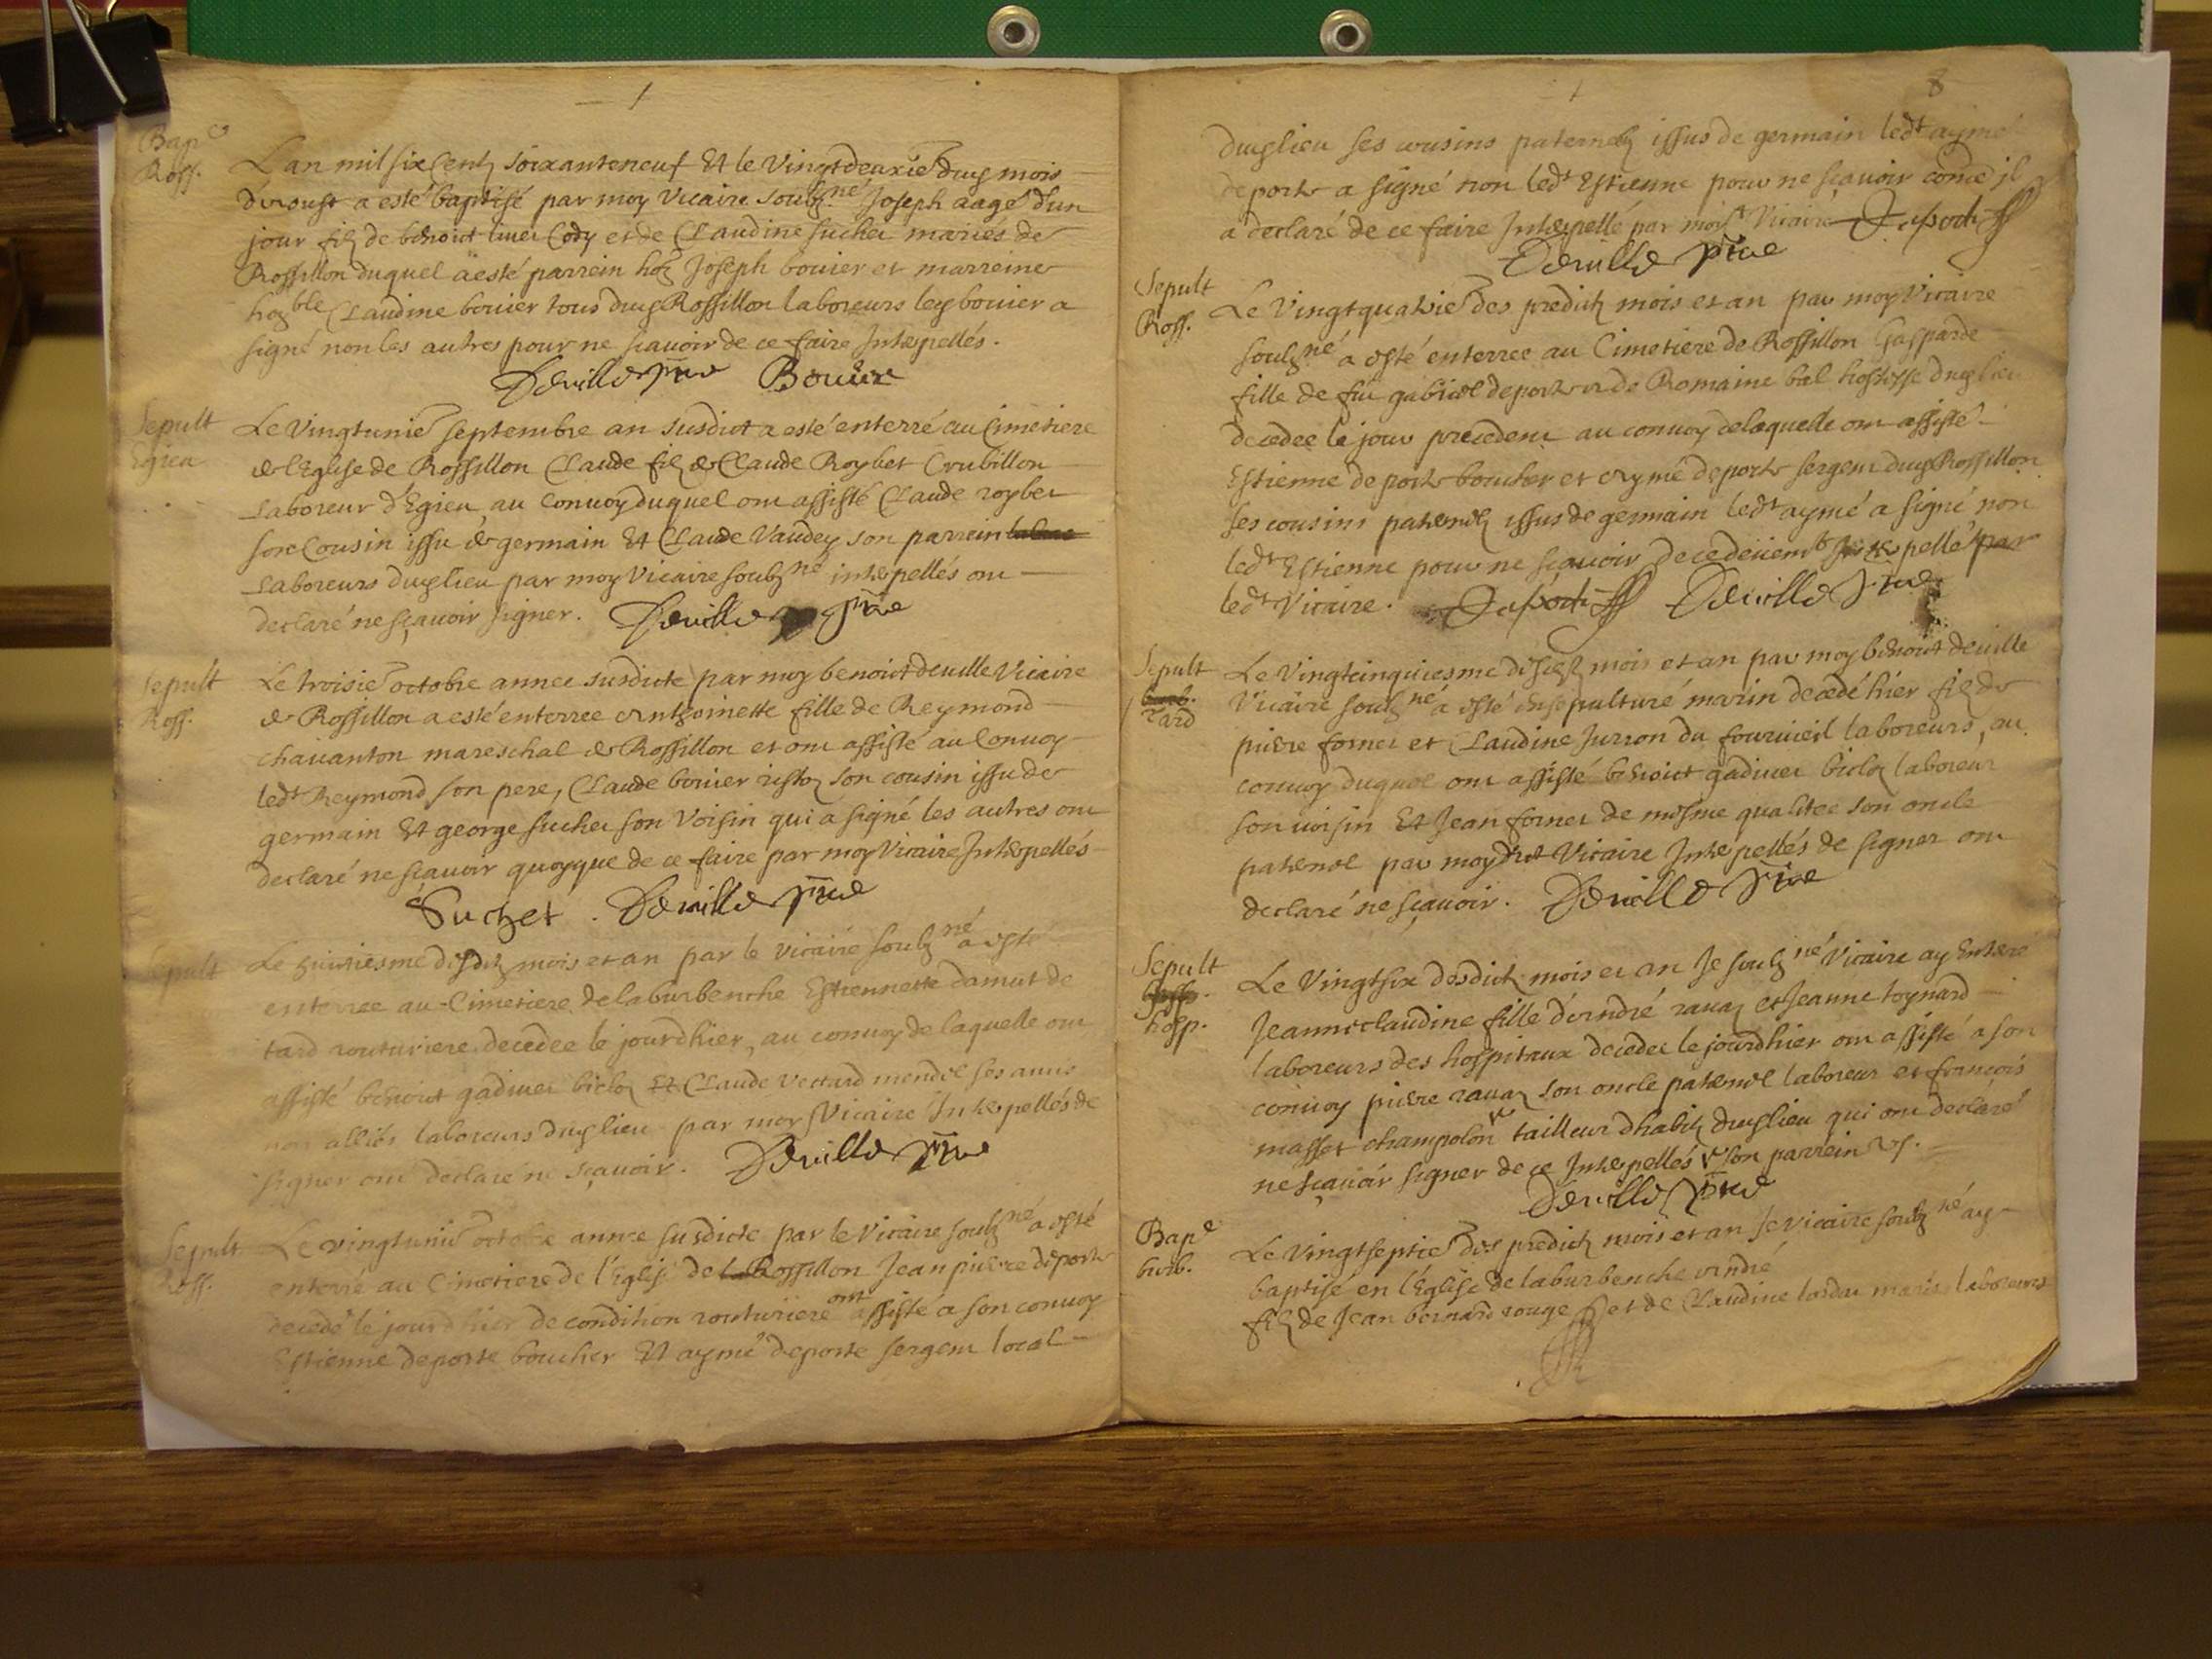 Bap^e
Roff.
L'an mil six centz soixanteneuf Et le Vingtdeuxie dud mois
d'Aoust a esté baptisé par moy Vicaire soubz^né Joseph aagé d'un
jour filz de benoict Cody et de Claudine suchet mariés de
Rossillon duquel a esté parrein ho^z Joseph bouier et marreine
ho^ble Claudine bouier tous dud Rossillon laboreurs led bouier a
signé non les autres pour ne scauoir de ce faire Interpellés.
Deuille p^tre Bouier
Sepult
Egieu
Le Vingtunie septembre an susdict a esté enterré au Cimetiere
de l'Eglise de Rossillon Claude filz de Claude Roybet Crubillon
Laboreur d'Egieu, au Conuoy duquel ont assisté Claude roybet
son Cousin issu de germain Et Claude Vaudey son parrein
Laboreurs dud lieu par moy Vicaire soubz^né interpellés ont
declaré ne sçauoir signer. Deuille p^tre
sepult
Roff.
Le troisie octobre annee susdicte par moy benoict deuille Vicaire
de Rossillon a esté enterree Anthoinette fille de Reymond
chauanton mareschal de Rossillon et ont assisté au Conuoy
led^t Reymond son pere, Claude bouier son cousin issu de
germain Et george suchet son Voisin qui a signé les autres ont
declaré ne sçauoir quoyque de ce faire par moy Vicaire Interpellés
Suchet . Deuille p^tre
Sepult
Le huictiesme desd^tz mois et an par le vicaire soubz^né a esté
enterree au Cimetiere de laburbenche Estiennette damut de
tard routuriere decedee le jourdhier, au conuoy de laquelle ont
assisté benoict gadiuet biclet Et Claude Vettard mendel ses amis
non alliés laboreurs dud lieu par moy Vicaire Interpellés de
signer ont declaré ne sçauoir. Deuille p^tre
Sepult
Roff.
Le vingtunie octobre annee susdicte par le Vicaire soubz^né a esté
enterré au Cimetiere de l'Eglise de la Rossillon Jean pierre deporte
decedé le jourdhier de condition routuriere ont assisté a son conuoy
Estienne deporte boucher Et aymé deporte sergent local
8
dud lieu ses cousins paternelz issus de germain led^t aymé
deporte a signé non led^t Estienne pour ne sçauoir come il
a declaré de ce faire Interpellé par moy^t Vicaire Deporte
Deuille p^tre
Sepult
Roff.
Le Vingtquatrie des predictz mois et an par moy Vicaire
soubz^né a esté enterree au Cimetiere de Rossillon Gasparde
fille de feu gabriel deporte et de Romaine bal hostesse dud lieu
decedee le jour precedent au conuoy de laquelle ont assisté
Estienne deporte boucher et Aymé deporte sergent dud Rossillon
ses cousins paternelz issus de germain led^t aymé a signé non
led^t Estienne pour ne sçauoir de ce deüem^t Interpellé par
led^t Vicaire. Deporte Deuille p^tre
Sepult
burb.
Tard
Le Vingtcinquiesme desd^tz mois et an par moy benoict deuille
Vicaire soubz^né a esté ensepulturé marin decedé hier filz de
pierre fornet et Claudine Jurron du fourvieil laboreurs, au
conuoy duquel ont assisté benoict gadiuet biclet laboreur
son uoisin Et Jean fornet de mesme qualitee son oncle
paternel par moy dict Vicaire Interpellés de signer ont
declaré ne sçauoir. Deuille p^tre
Sepult
hosp.
Le Vingtsix desdictz mois et an Je soubz^né Vicaire ay Enterré
Jeanneclaudine fille d'André rauaz et Jeanne toynard
laboreurs des hospitaux decedee le jourdhier ont assisté a son
conuoy pierre rauaz son oncle paternel laboreur et françois
masset champolon tailleur dhabitz dud lieu qui ont declaré
ne sçauoir signer de ce Interpellés son parrein
Deuille p^tre
Bap^e
burb.
Le Vingtseptie des predictz mois et an Je vicaire soubz^né ay
baptisé en l'Eglise de laburbenche André
filz de Jean bernard rouge et de Claudine mariés laboreurs